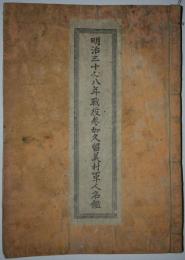 明治三十七八年戦役参加久留美村軍人名鑑